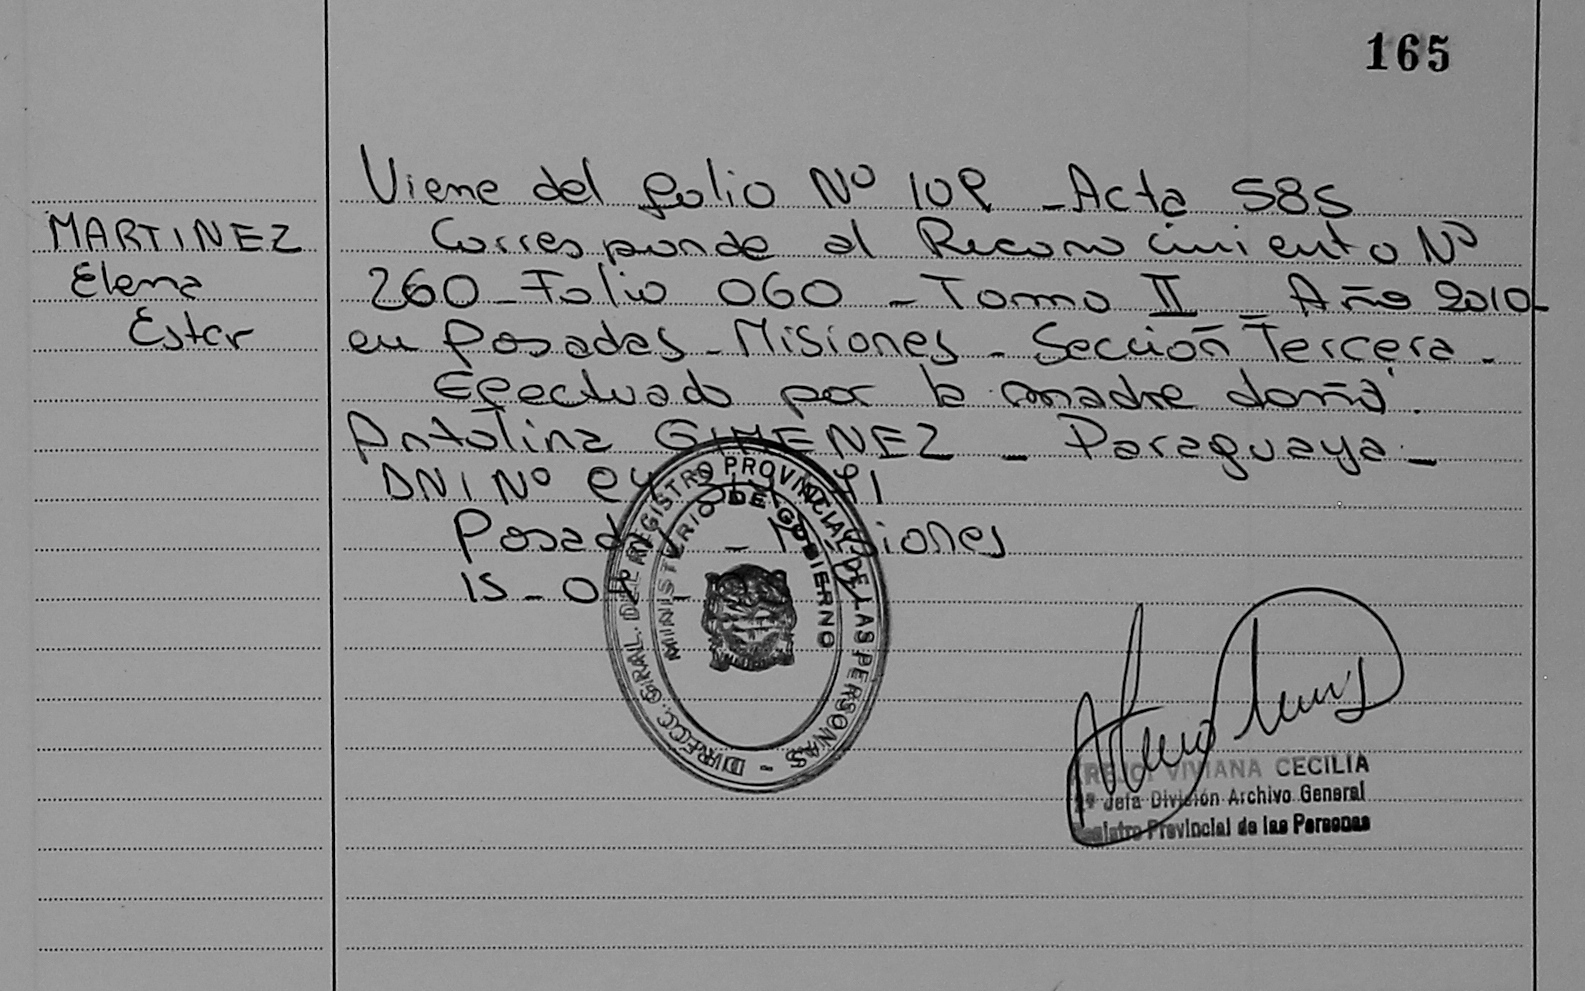 165
Viene del folio Nº 109 - Acta 585
MARTINEZ
Elena
Ester
Corresponde al Reconocimiento Nº
260 - Folio 060 - Tomo II - Año 2010 -
en Posadas - Misiones - Sección Tercera -
Efectuado por la madre doña
Antolina GIMENEZ - Paraguaya -
DNI Nº
Posadas - Misiones
15 -
DIRECC. GRAL. DEL REGISTRO PROVINCIAL DE LAS PERSONAS -
MINISTERIO DE GOBIERNO
VIVIANA CECILIA
Jefa División Archivo General
Registro Provincial de las Personas